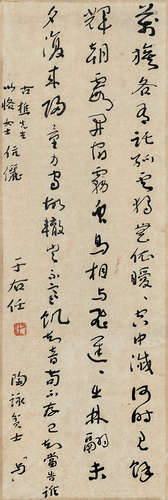 萬族各有託孤雲獨無依曖〻空中滅何時見餘
暉朝霞開宿霧眾鳥相與飛遲〻出林翮未
夕復來歸量力守故轍豈不寒與飢知音苟不存已矣當告誰
樵先生
以恪女士 伉儷
于右任
陶詠貧士